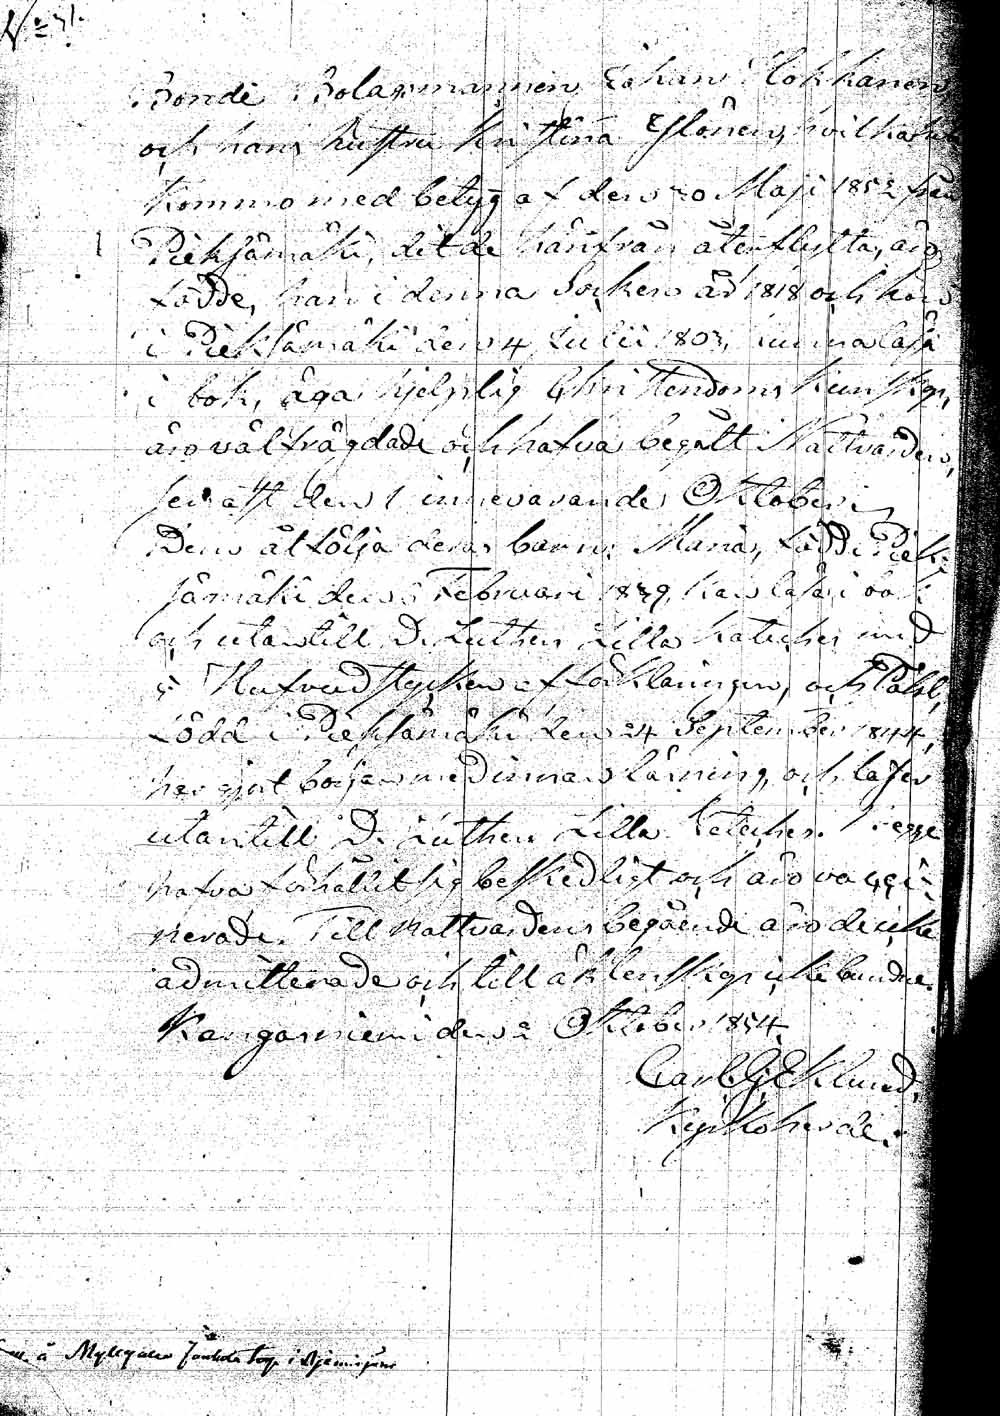 Bonde Bolagsmannen Johan Hokkanen
och hans hustru Kristina Ylönen, hvilka
kommo med betyg af den 20 Maji 1852 från
Pieksämäki, dit de härifrån återflytta, äro
födde, han i denna Socken år 1818 och hon
i Pieksämäki den 4 Julii 1803, kunna läsa
i bok, äga hjelplig Christendoms kunskap,
äro välfrägdade och hafva begått Nattvarden,
senast den 1 innevarande Oktober.
Dem åtfölja deras barn: Maria, född i Piek-
sämäki den Februari 1839, kan läsa i bok
och utantill D. Luthers Lilla Kateches med
5 Hufvudstycken af förklaringen, och Påhl,
född i Pieksämäki den 24 September 1844,
har gjort början med innanläsning, och läser
utantill D. Luthers Lilla Kateches. Begge
hafva förhållit sig beskedligt och äro vacci-
nerade. Till Nattvardens begående äro de icke
admitterade och till äktenskap icke bundne.
Kangasniemi den 2 Oktober 1854.
Carl G. Eklund,
Kyrkoherde.